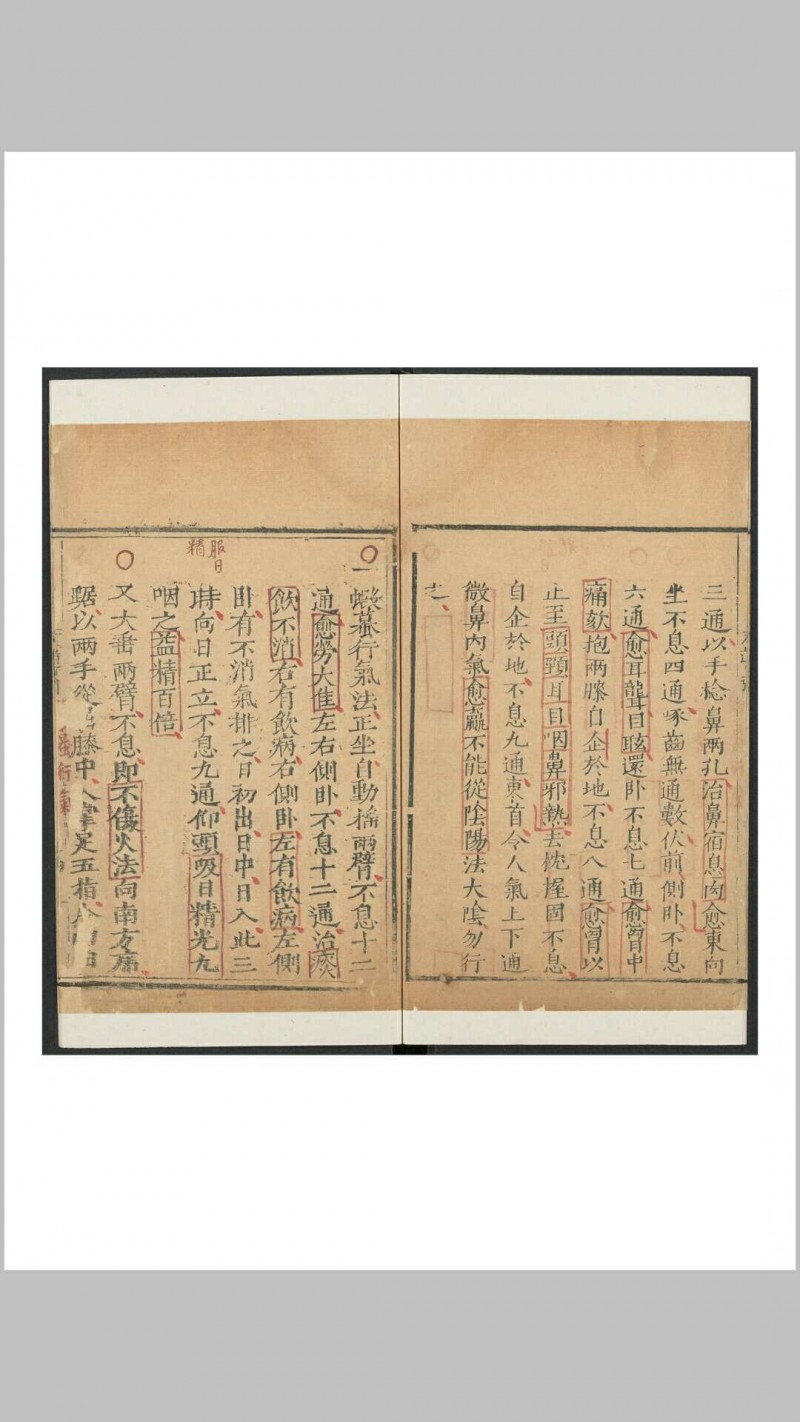 三通以手捻鼻兩孔治鼻宿息肉愈東向
坐不息四通啄齒無通數伏前側卧不息
六通愈耳聾目眩還卧不息七通愈胷中
痛欬抱兩膝自企於地不息八通愈胷以
上至頭頸耳目咽鼻邪熱去枕握固不息
自企於地不息九通東首令人氣上下通
微鼻內氣愈羸不能從陰陽法大陰勿行
之
一蝦蟇行氣法正坐自動搖兩臂不息十二
通愈勞大隹左右側卧不息十二通治痰
飲不消右有飲病右側卧左有飲病左側
卧有不消氣排之日初出日中日入此三
時向日正立不息九通仰頭吸日精光九
服日
精
咽之益精百倍
又大番兩臂不息即不傷火法向南方
踞以兩手從膝中入掌足五指